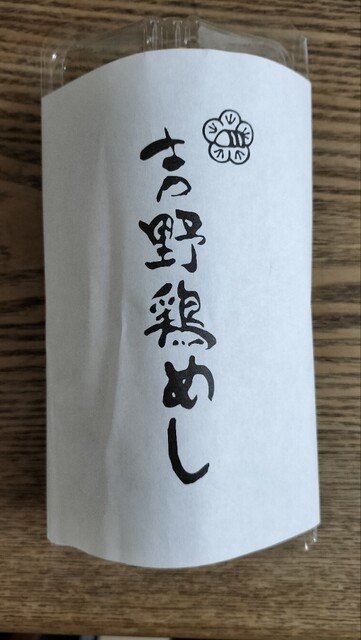 吉野鶏めし